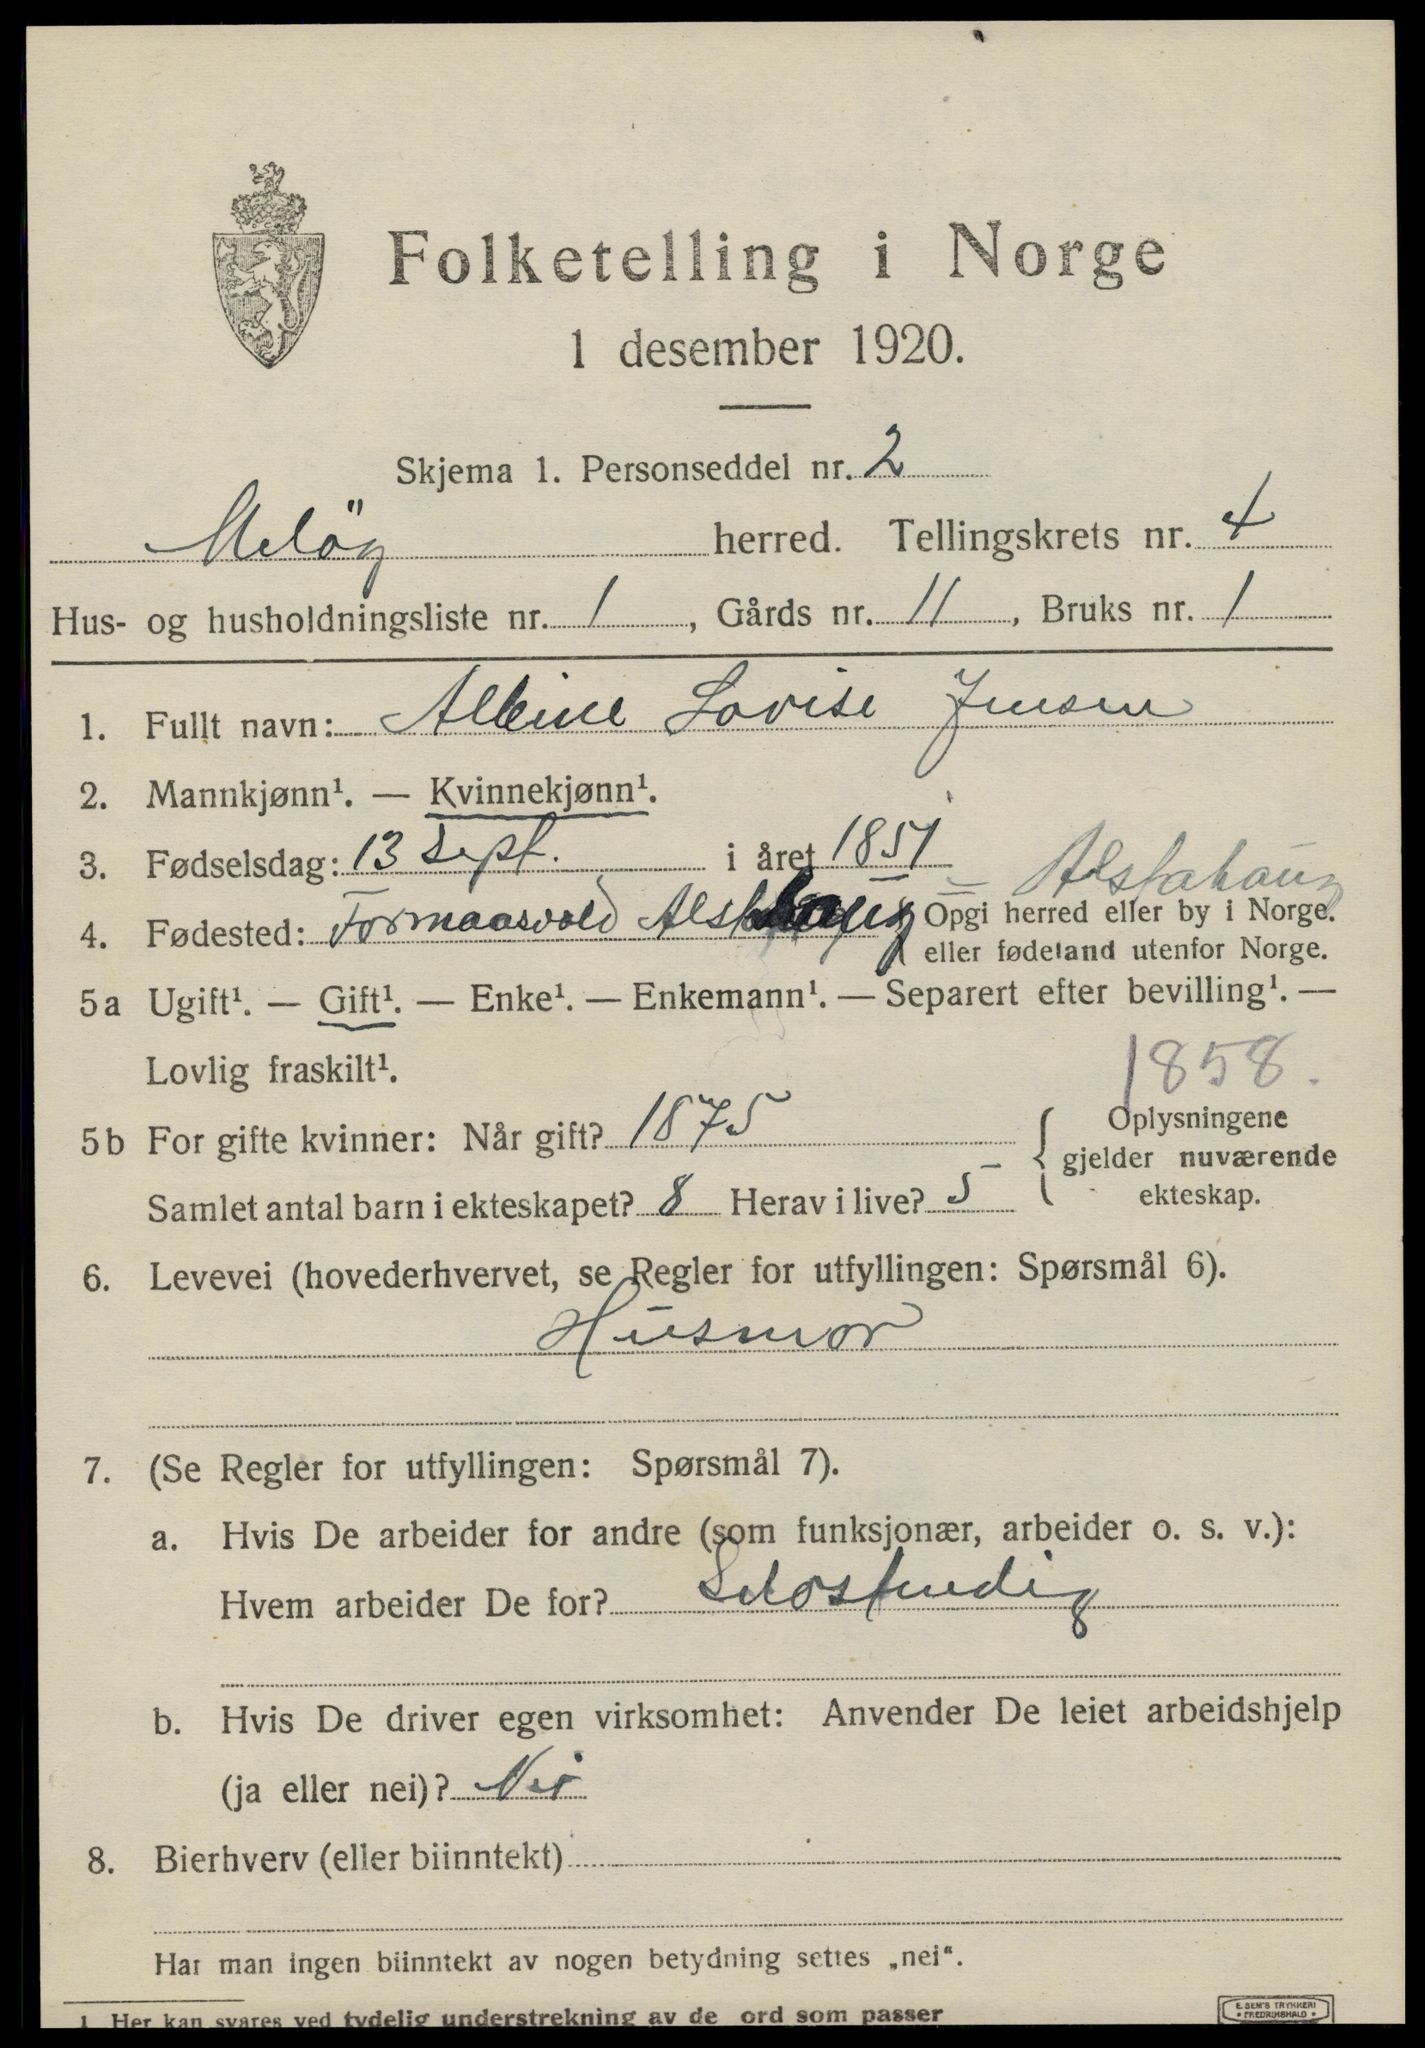 Folketelling i Norge
1 desember 1920.
Skjema 1. Personseddel nr. 2
Meløy herred. Tellingskrets nr. 4
Hus- og husholdningsliste nr. 1, Gårds nr. 11, Bruks nr. 1
1. Fullt navn: Albine Lovise Jensen
2. Mannkjønn¹. — Kvinnekjønn¹.
3. Fødselsdag: 13 Sept. i året 1851
Alstahaug
4. Fødested: Formaasvold Alstahaug { Opgi herred eller by i Norge.
eller fødeland utenfor Norge.
5a Ugift¹. — Gift¹. — Enke¹. — Enkemann¹. — Separert efter bevilling¹. —
Lovlig fraskilt¹.
1858.
5b For gifte kvinner: Når gift? 1875
Samlet antal barn i ekteskapet? 8 Herav i live? 5
{ Oplysningene
gjelder nuværende
ekteskap.
6. Levevei (hovederhvervet, se Regler for utfyllingen: Spørsmål 6).
Husmor
7. (Se Regler for utfyllingen: Spørsmål 7).
a. Hvis De arbeider for andre (som funksjonær, arbeider o. s. v.):
Hvem arbeider De for? Selvstendig
b. Hvis De driver egen virksomhet: Anvender De leiet arbeidshjelp
(ja eller nei)? Nei
8. Bierhverv (eller biinntekt)
Har man ingen biinntekt av nogen betydning settes „nei“.
1 Her kan svares ved tydelig understrekning av de ord som passer
E. SEM'S TRYKKERI
FREDRIKSHALD